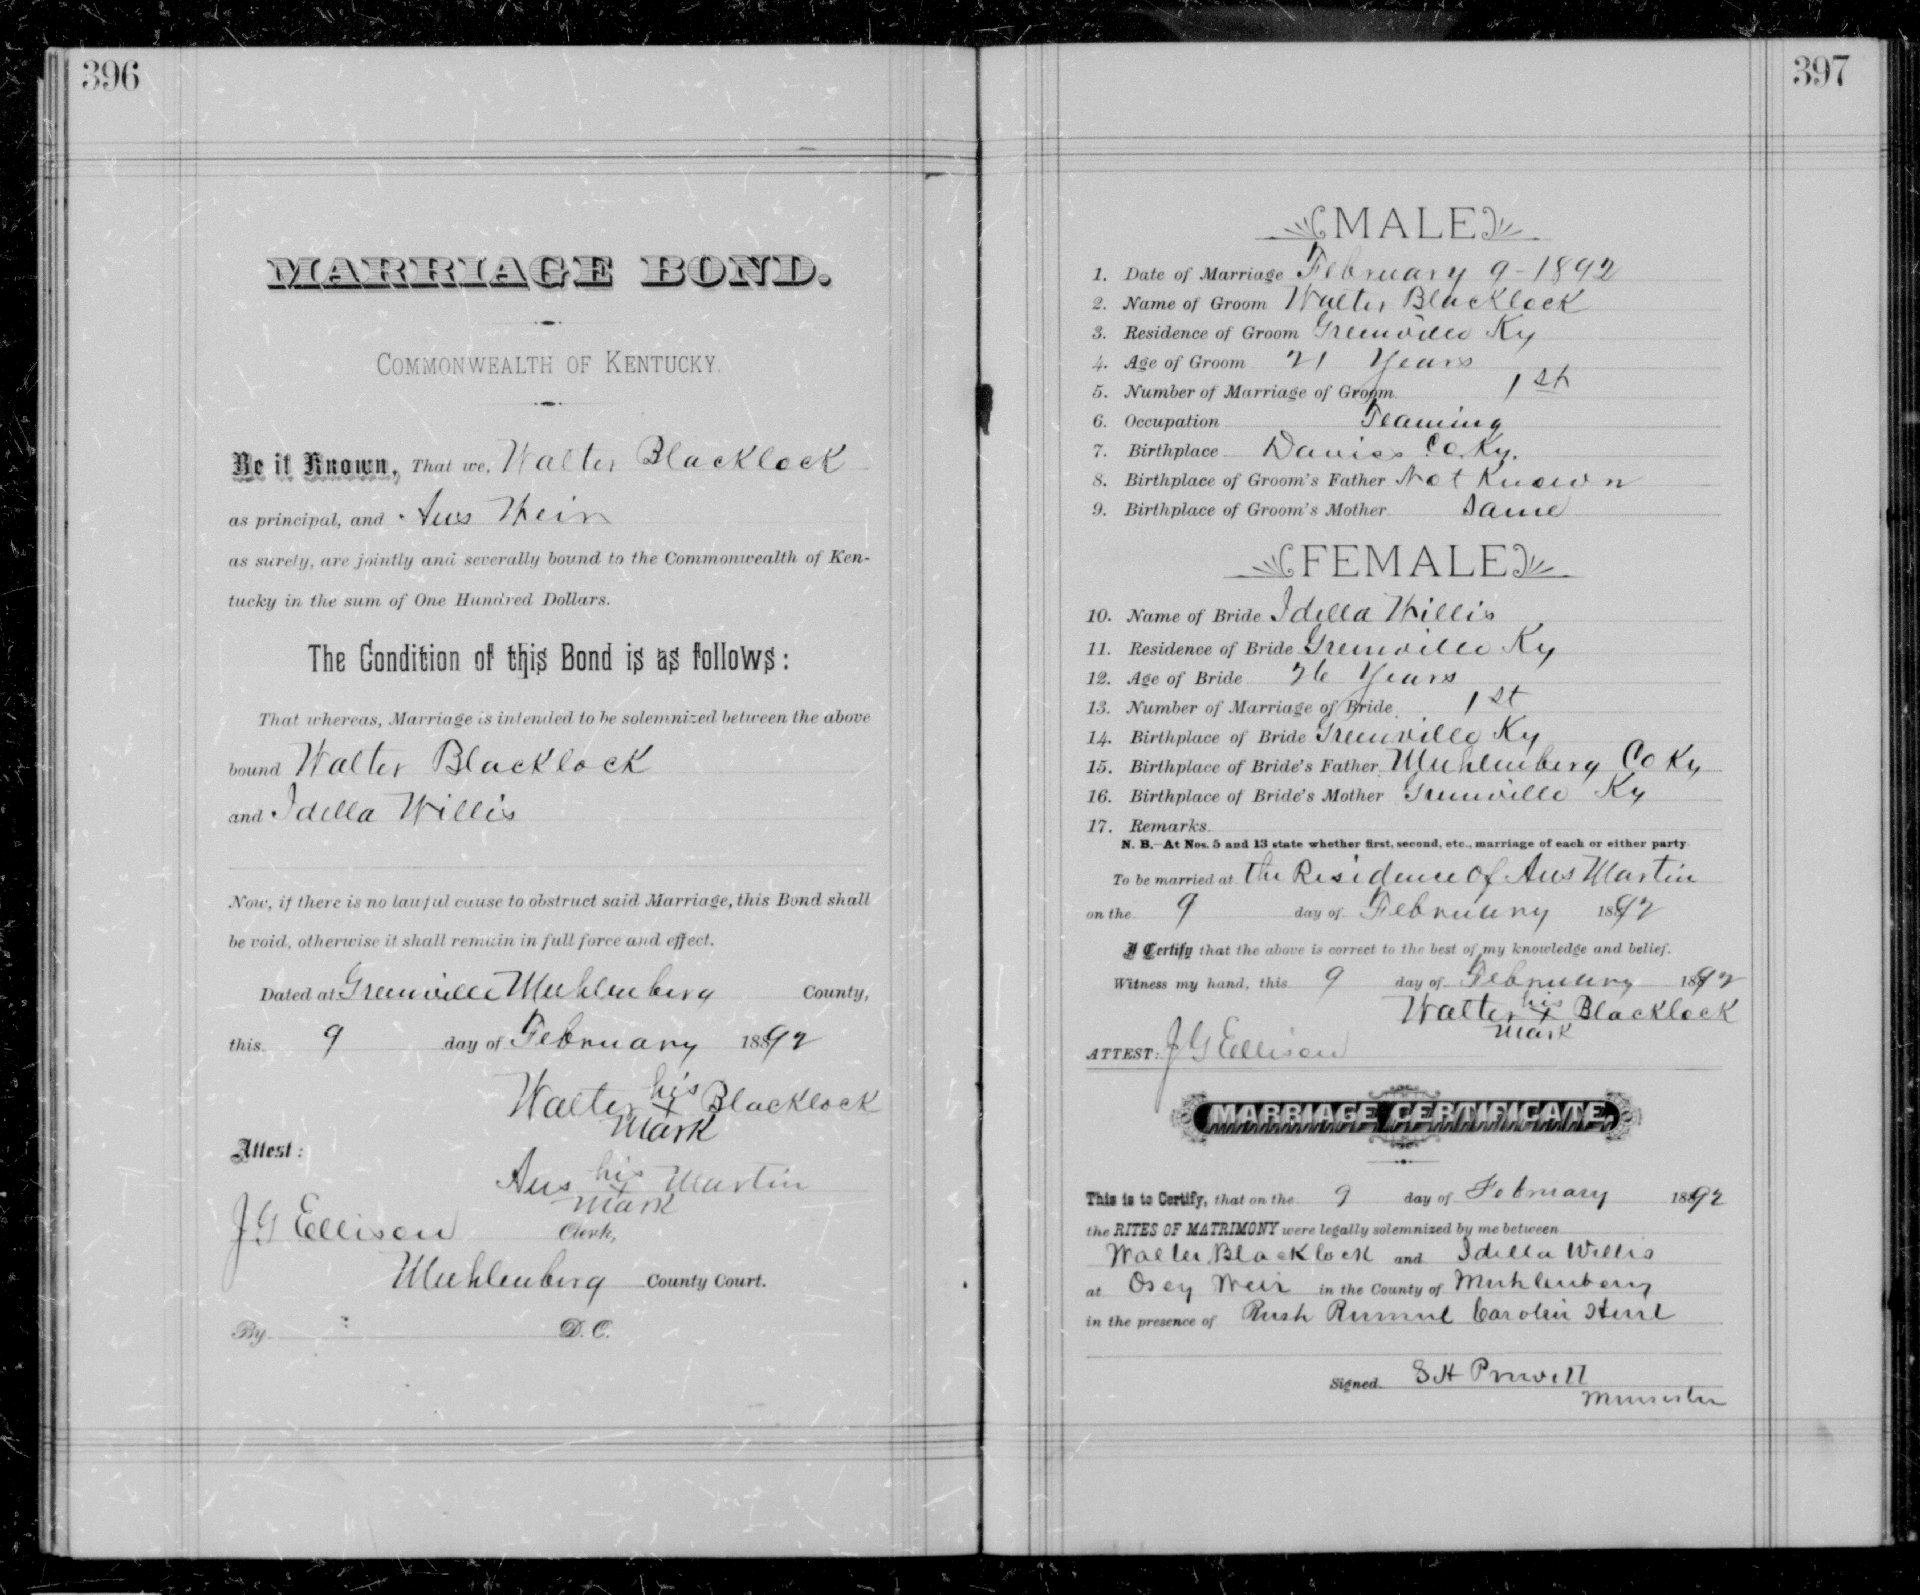 396
MARRIAGE BOND.
COMMONWEALTH OF KENTUCKY.
Be it Known, That we, Walter Blacklock
as principal, and Aus Weir
as surety, are jointly and severally bound to the Commonwealth of Ken-
tucky in the sum of One Hundred Dollars.
The Condition of this Bond is as follows:
That whereas, Marriage is intended to be solemnized between the above
bound Walter Blacklock
and Idella Willis
Now, if there is no lawful cause to obstruct said Marriage, this Bond shall
be void, otherwise it shall remain in full force and effect.
Dated at Greenville Muhlenberg County,
this 9 day of February 1892
Walter his x mark Blacklock
Attest:
Aus his x mark Martin
J G Ellison Clerk,
Muhlenberg County Court.
By D. C.
397
MALE
1. Date of Marriage February 9-1892
2. Name of Groom Walter Blacklock
3. Residence of Groom Greenville Ky
4. Age of Groom 21 Years
5. Number of Marriage of Groom 1st
6. Occupation Teaming
7. Birthplace Daviss Co. Ky.
8. Birthplace of Groom's Father Not Known
9. Birthplace of Groom's Mother Same
FEMALE
10. Name of Bride Idella Willis
11. Residence of Bride Greenville Ky
12. Age of Bride 26 Years
13. Number of Marriage of Bride 1st
14. Birthplace of Bride Greenville Ky
15. Birthplace of Bride's Father Muhlenberg Co Ky
16. Birthplace of Bride's Mother Greenville Ky
17. Remarks
N. B.—At Nos. 5 and 13 state whether first, second, etc., marriage of each or either party
To be married at the Residence of Aus Martin
on the 9 day of February 1892
I Certify that the above is correct to the best of my knowledge and belief.
Witness my hand, this 9 day of February 1892
Walter his x mark Blacklock
ATTEST: J G Ellison
MARRIAGE CERTIFICATE.
This is to Certify, that on the 9 day of February 1892
the RITES OF MATRIMONY were legally solemnized by me between
Walter Blacklock and Idella Willis
at Osey Weir in the County of Muhlenberg
in the presence of Rush Carolin
Signed. S H
Minister